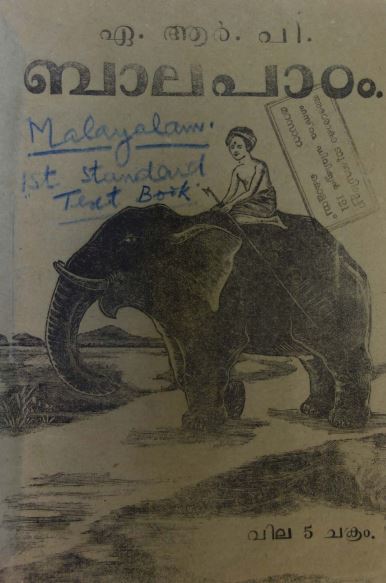 ഏ. ആർ. പി.
ബാലപാഠം.
Malayalam.
1st Standard
Text Book.
വില 5 ചക്രം.